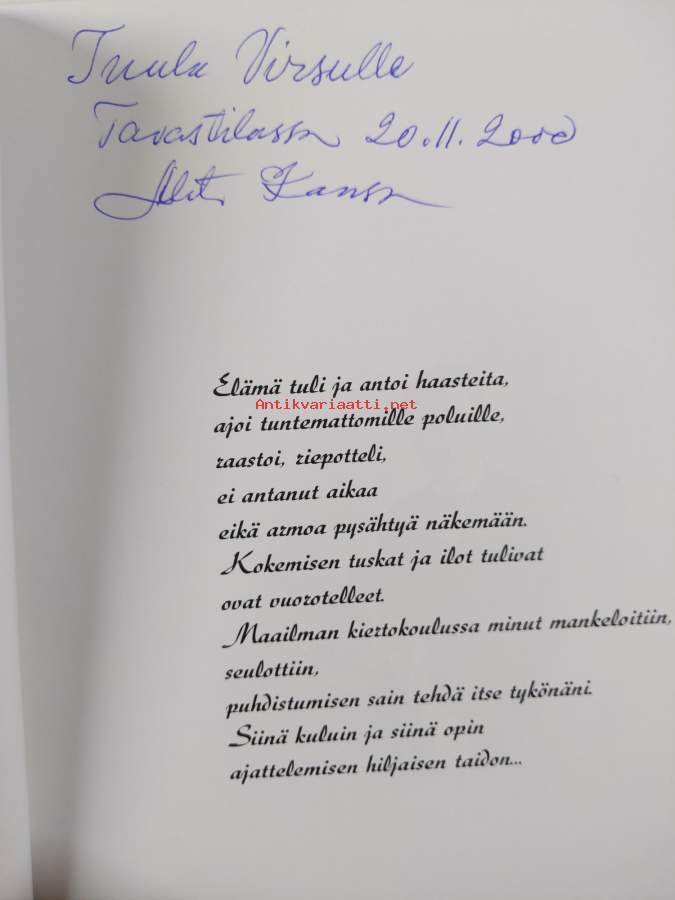 Tuula Virsulle
Tavastilassa 20.11.2000
Elämä tuli ja antoi haasteita,
Antikvariaatti.net
ajoi tuntemattomille poluille,
raastoi, riepotteli,
ei antanut aikaa
eikä armoa pysähtyä näkemään.
Kokemisen tuskat ja ilot tulivat
ovat vuorotelleet.
Maailman kiertokoulussa minut mankeloitiin,
seulottiin,
puhdistumisen sain tehdä itse tykönäni.
Siinä kuluin ja siinä opin
ajattelemisen hiljaisen taidon...